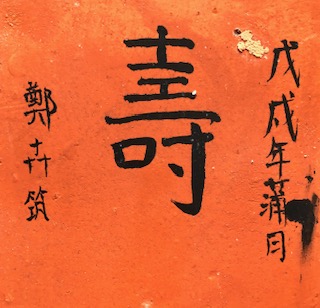 戊戌年蒲月
壽
鄭卉筑